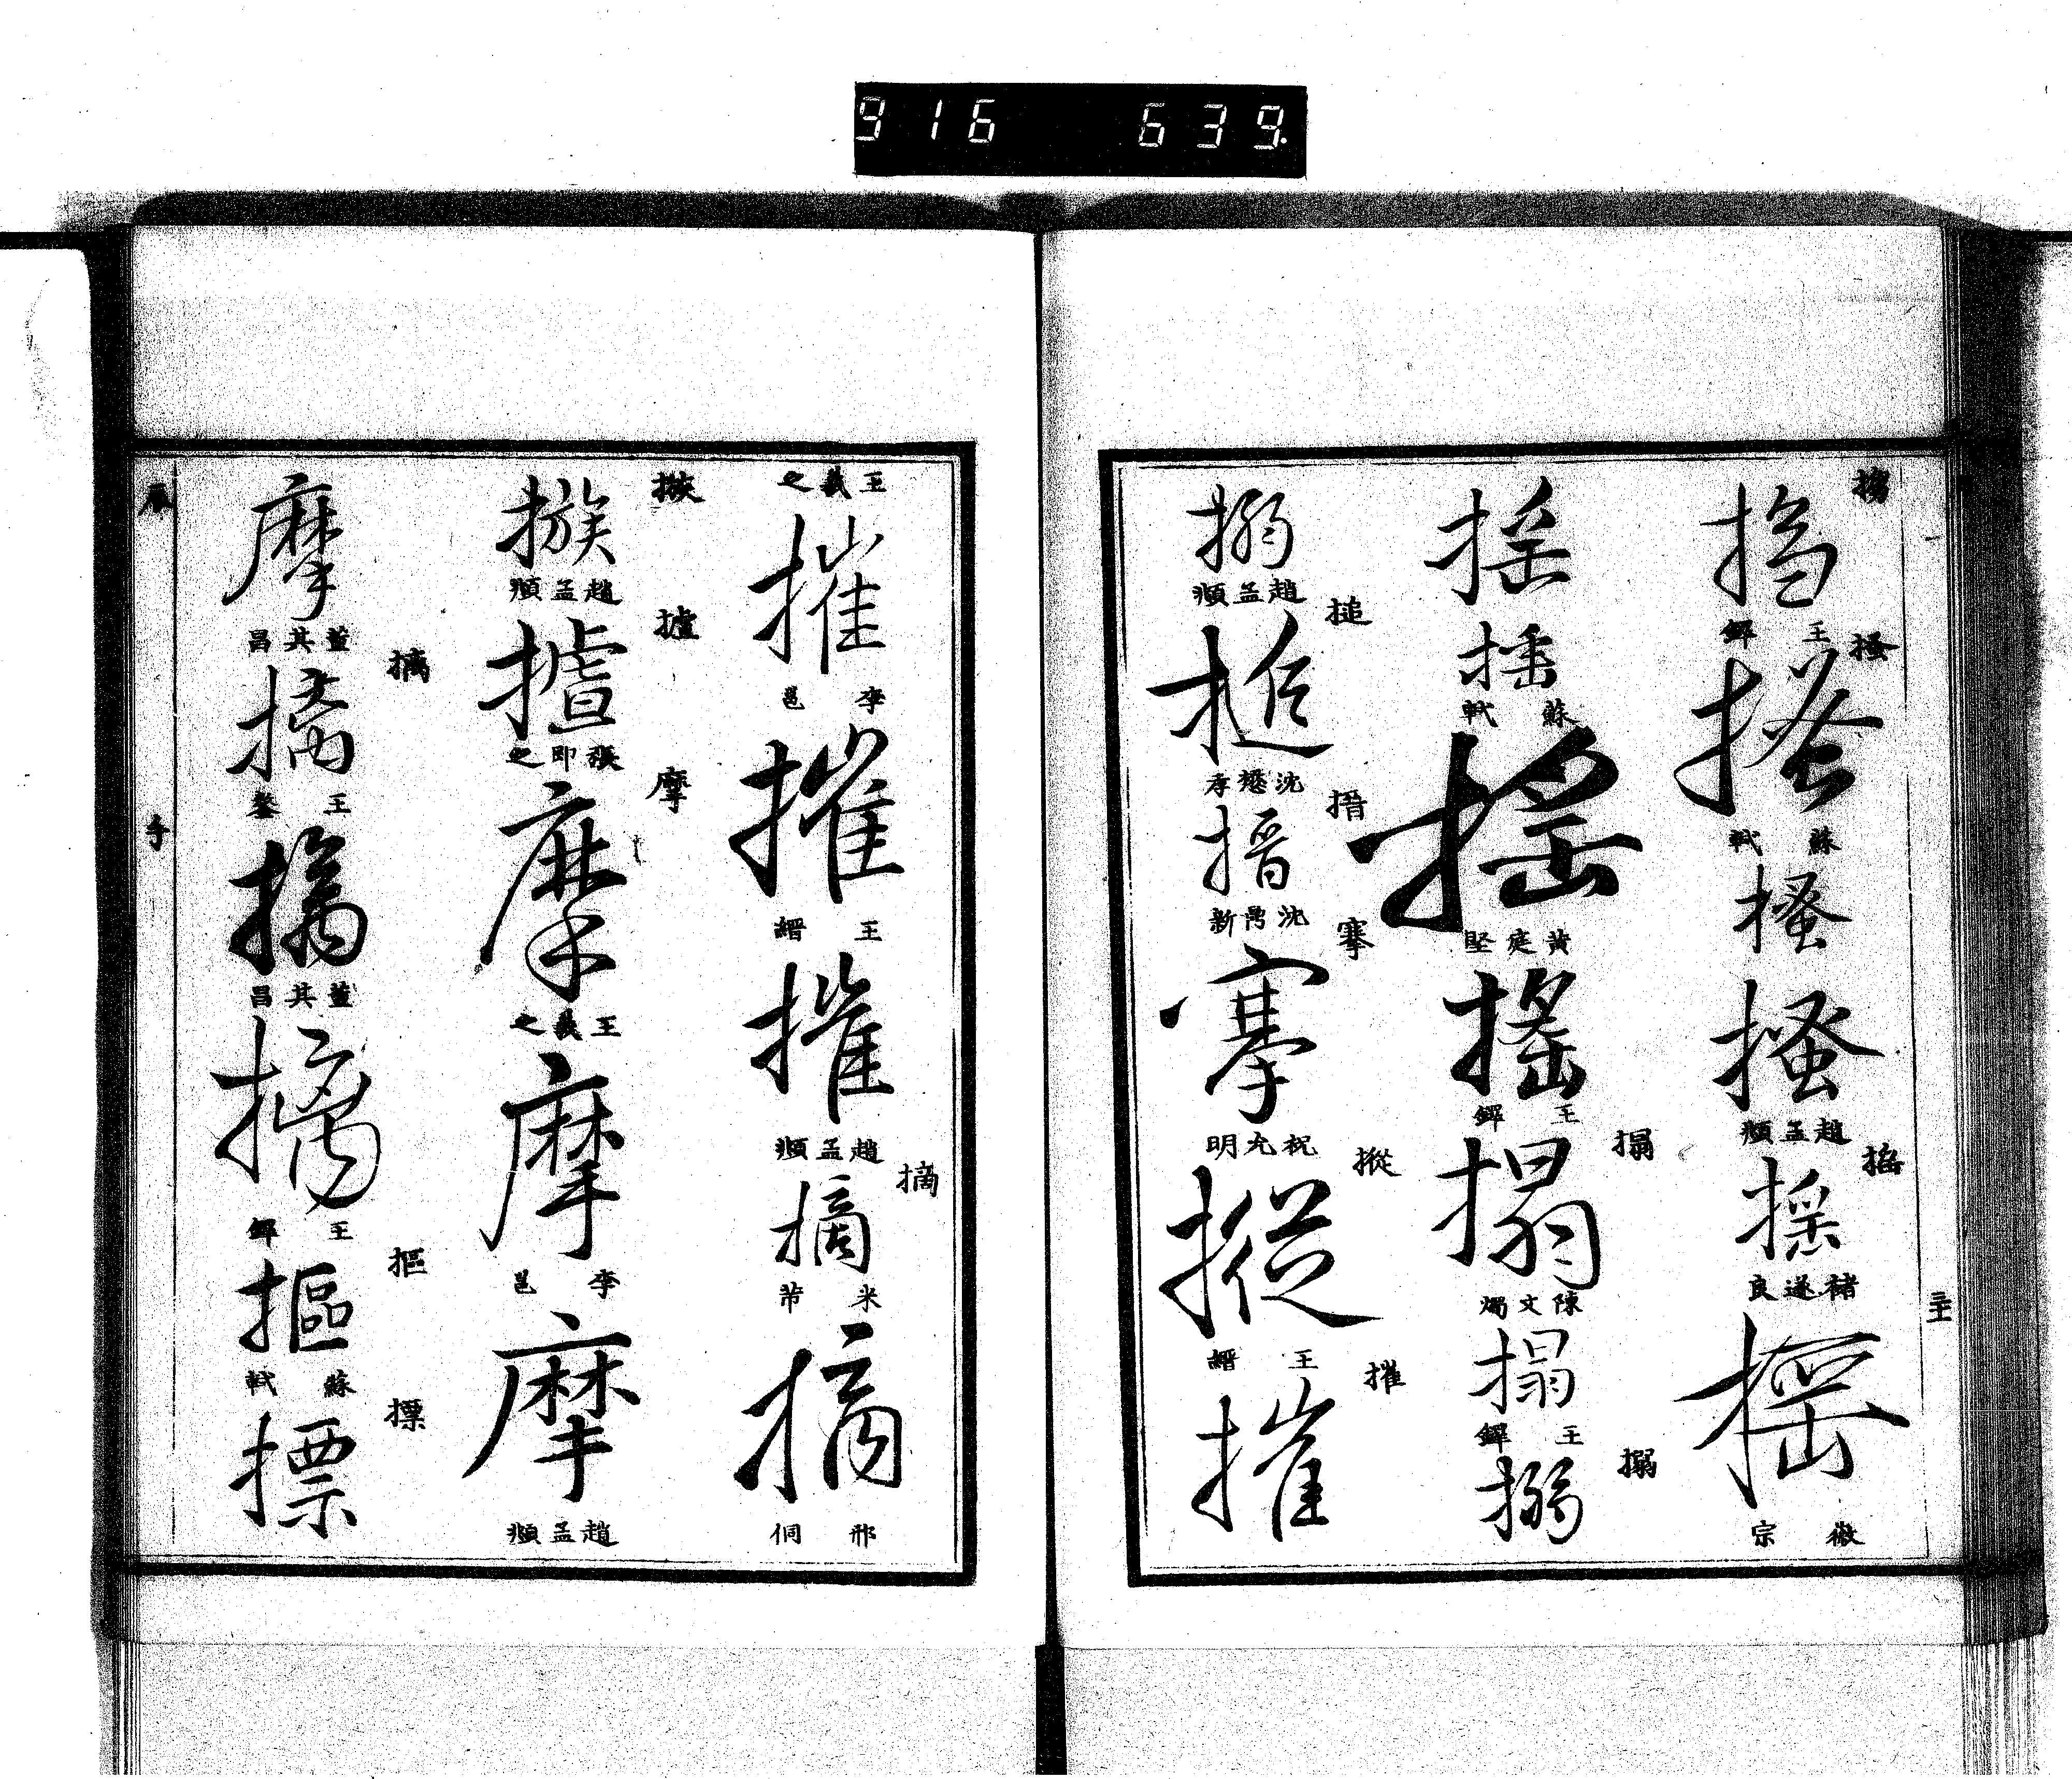 916 639.
搊
搊
王鐸
搔
搔
蘇軾
搔
搔
趙孟頫
搖
搖
褚遂良
搖
徽宗
搖
搖
蘇軾
搖
黃庭堅
搖
王鐸
搨
搨
陳文燭
搨
王鐸
搦
搦
搦
趙孟頫
搥
搥
沈懋孝
搢
搢
沈鼎新
搴
搴
祝允明
摐
摐
王縉
摧
摧
王羲之
摧
李邕
摧
王縉
摧
趙孟頫
摘
摘
米芾
摘
邢侗
摋
趙孟頫
摣
摣
張即之
摩
摩
王羲之
摩
李邕
摩
趙孟頫
摩
董其昌
摛
摛
王鏊
摛
董其昌
摛
王鐸
摳
摳
蘇軾
摽
摽
手